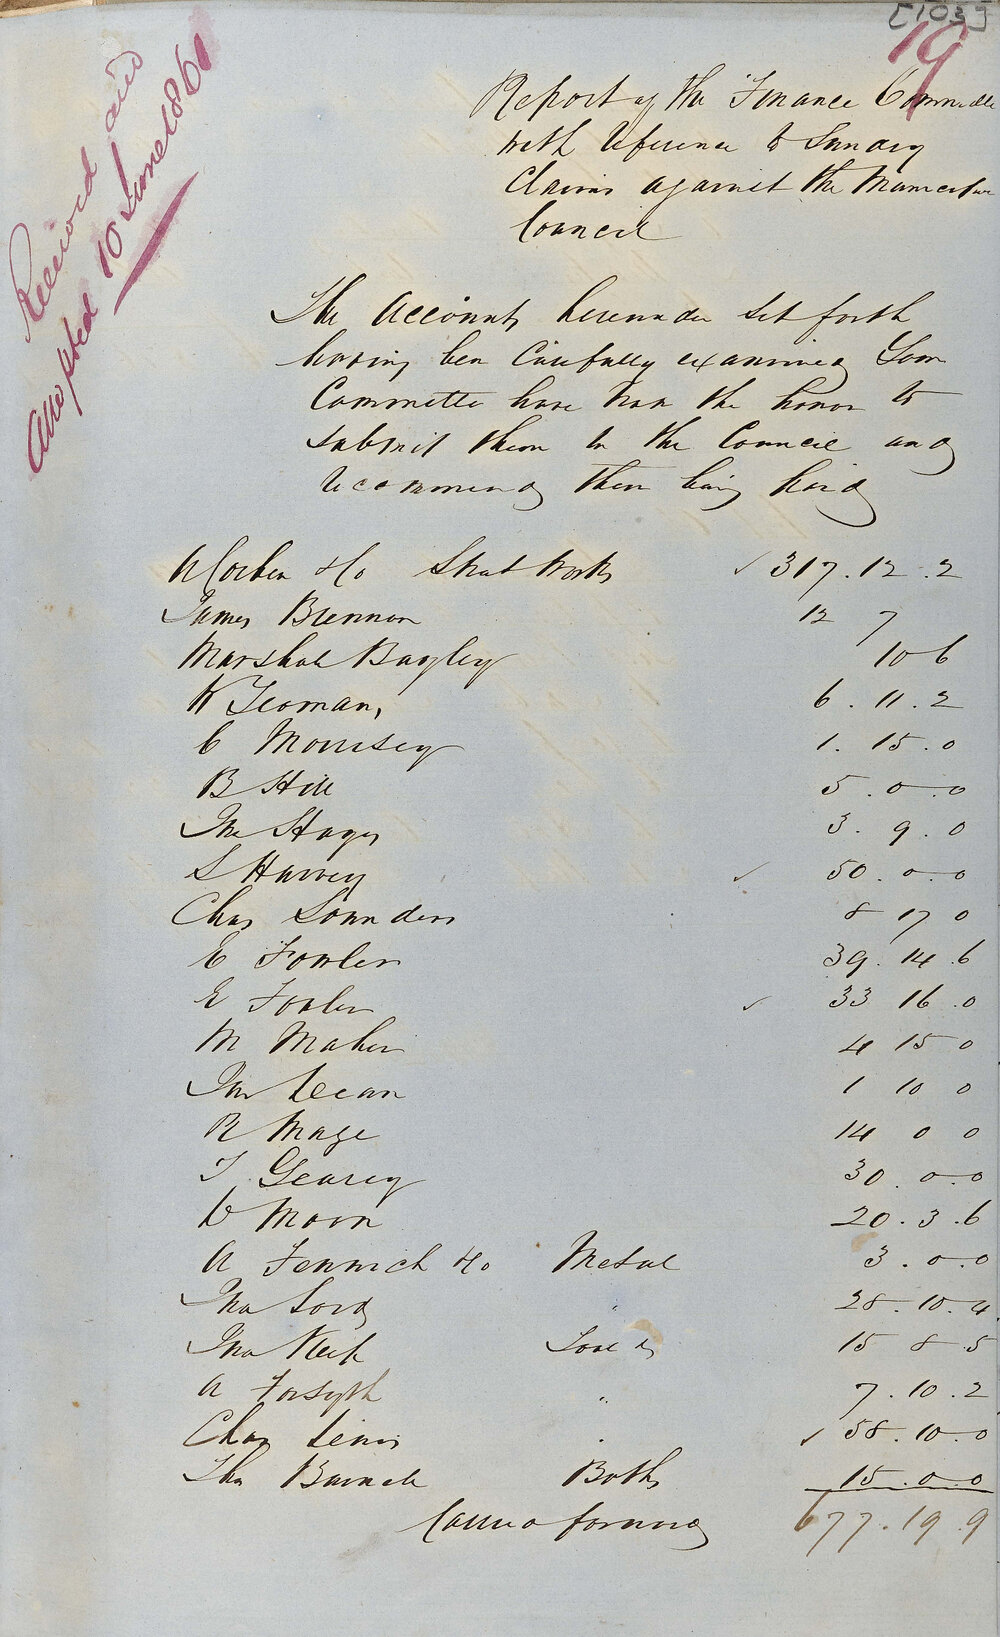 [103]
19
Received and
Adopted 10 June 1861
Report of the Finance Committee
with reference to Sundry
Claims against the Municipal
Council
The Accounts hereunder set forth
having been Carefully examined Your
Committee have now the honor to
submit them to the Council and
recommend their being paid
A Corben & Co Street Works ✓ 317.12.2
James Brennan 12 7
Marshall Bayley 10 6
W Yeoman, 6.11.2
C Morrisey 1.15.0
B Hill 5.0.0
Jno Hayes 3.9.0
S Harvey ✓ 50.0.0
Chas Saunders 8 17 0
E Fowler 39.14.6
E Fowler ✓ 33 16.0
M Maher 4 15 0
Jas 1 10 0
R Mage 14 0 0
T Gearey 30.0.0
D Moon 20.3.6
A Fenwick & Co Metal 3.0.0
Jno Lord " 28.10.4
Jno Keep 15 8.5
A Forsyth " 7.10.2
Chas Lewis " ✓ 58.10.0
Thos Baths 15.0.0
Carried forward 677.19.9